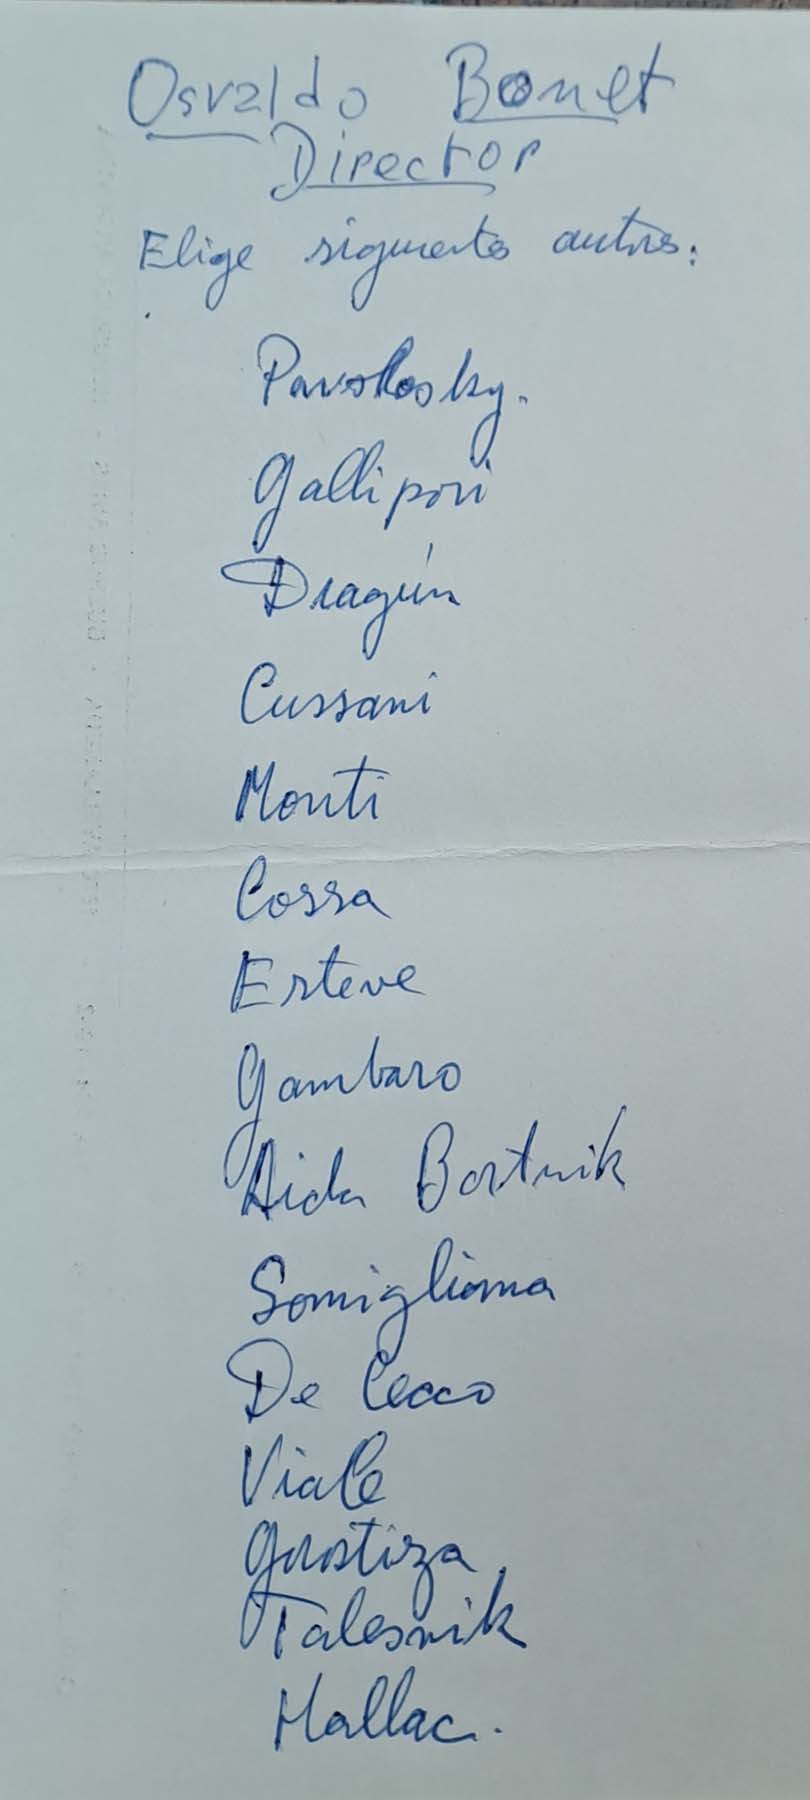 Osvaldo Bonet
Director
Elige siguientes autores:
Pavloosky.
Gallipori
Dragún
Cussani
Monti
Cossa
Esteve
Gambaro
Aida Bortnik
Somigliana
De Cecco
Viale
Gorostiza
Talesnik
Hallac.